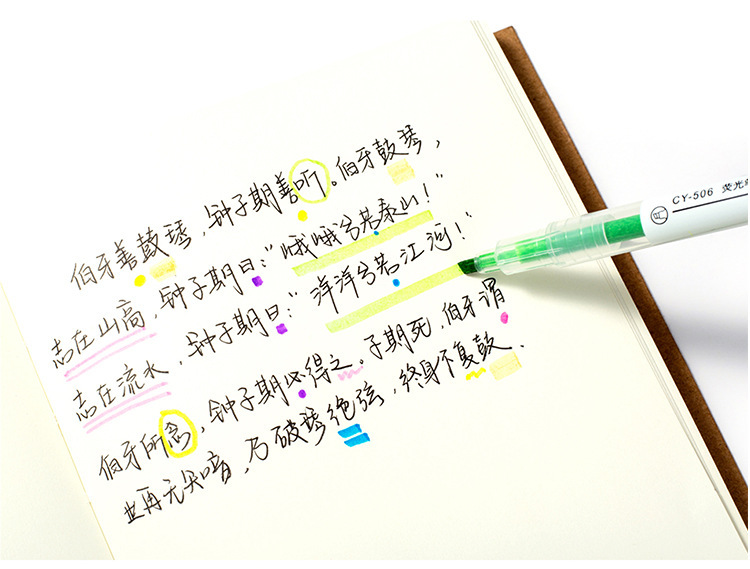 伯牙善鼓琴,钟子期善听。伯牙鼓琴,
志在山高,钟子期曰:“峨峨兮若泰山!”
志在流水,钟子期曰:“洋洋兮若江河!”
伯牙所念,钟子期必得之。子期死,伯牙谓
世再无知音,乃破琴绝弦,终身不复鼓.
CY-506 荧光